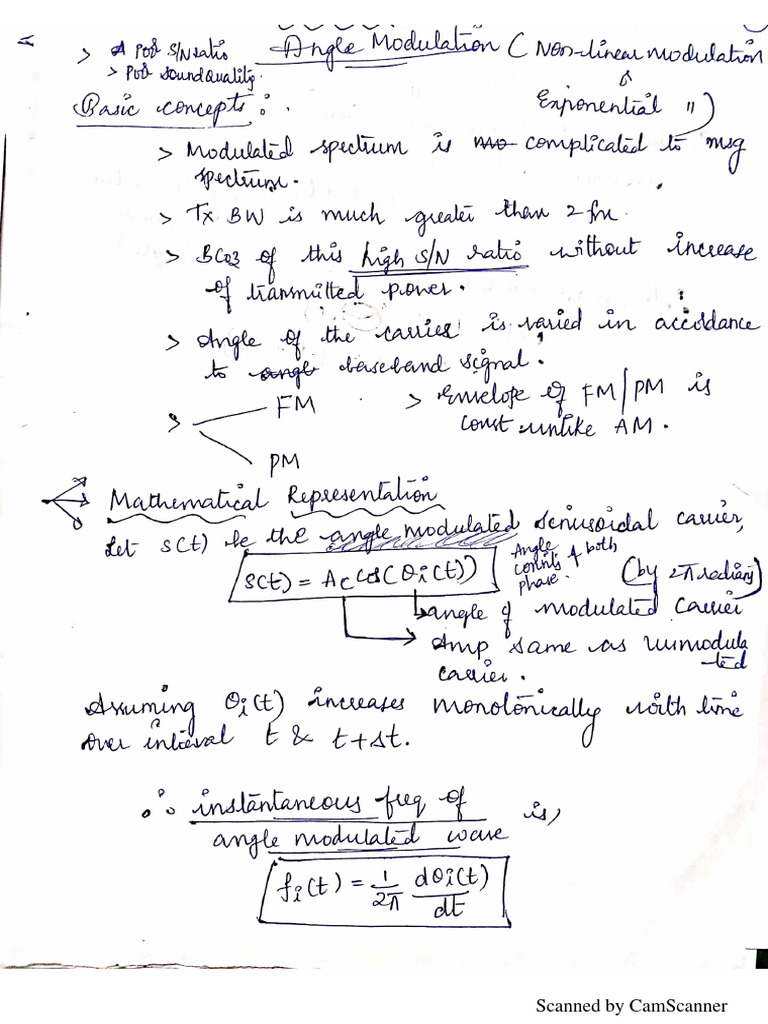 > Poor S/N ratio
> Poor sound quality.
Angle Modulation (Non-linear modulation
Exponential ")
Basic concepts :
> Modulated spectrum is complicated to msg
spectrum.
> Tx BW is much greater than 2fm.
> Bcoz of this high S/N ratio without increase
of transmitted power.
> Angle of the carrier is varied in accordance
to baseband signal.
> FM
PM
> Envelope of FM/PM is
const unlike AM.
Mathematical Representation
Let s(t) be the angle modulated sinusoidal carrier,
s(t) = Ac cos(θi(t))
Angle
of both
phase.
(by 2π radians)
angle of modulated carrier
Amp same as unmodula
ted
carrier.
Assuming θi(t) increases monotonically with time
over interval t & t+Δt.
∴ instantaneous freq of
angle modulated wave is,
fi(t) = 1/2π dθi(t)/dt
Scanned by CamScanner